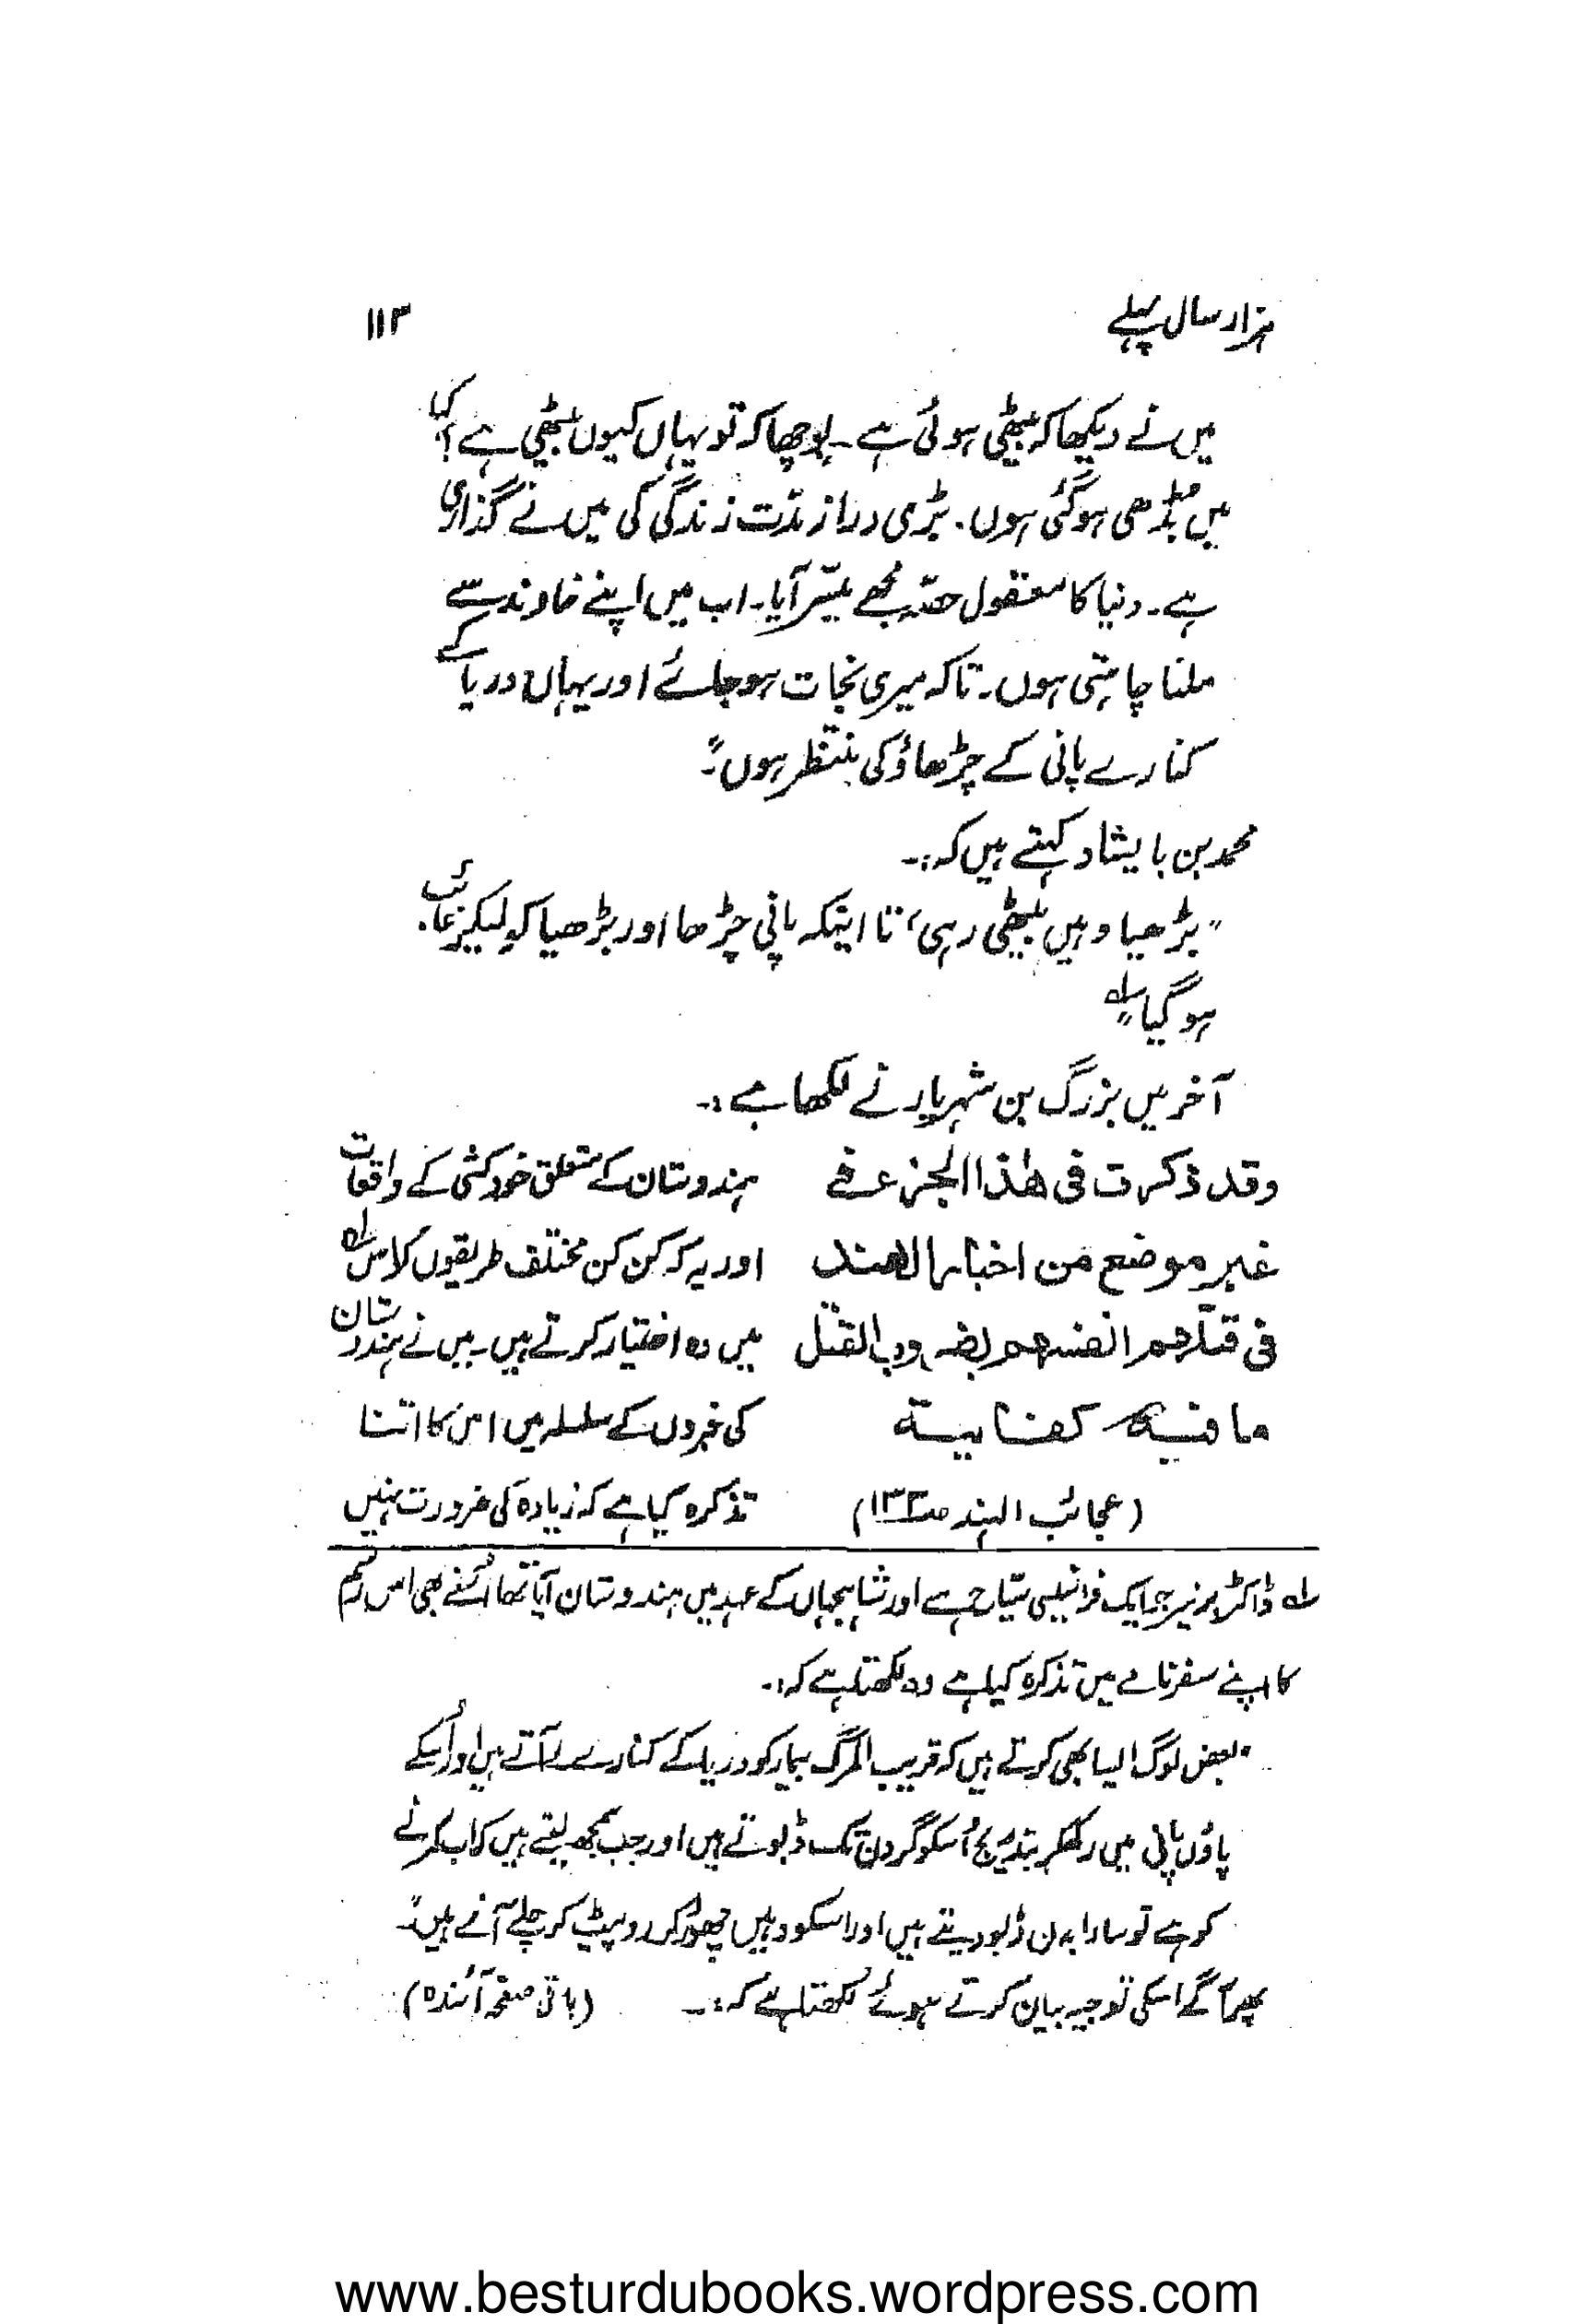 ہزار سال پہلے
۱۱۳
میں نے دیکھا کہ بیٹھی ہوئی ہے۔ پوچھا کہ تو یہاں کیوں بیٹھی ہے؟ کہا
میں بڈھی ہو گئی ہوں۔ بڑی دراز مدّت زندگی کی میں نے گذاری
ہے۔ دنیا کا معقول حصّہ مجھے میسّر آیا۔ اب میں اپنے خاوند سے
ملنا چاہتی ہوں۔ تاکہ میری نجات ہو جائے اور یہاں دریا کے
کنارے پانی کے چڑھاؤ کی منتظر ہوں"۔
محمد بن بابشاد کہتے ہیں کہ:۔
"بڑھیا وہیں بیٹھی رہی، تا اینکہ پانی چڑھا اور بڑھیا کو لیکر غائب
ہو گیا"۔ لہ
آخر میں بزرگ بن شہریار نے لکھا ہے:۔
وقد ذکرت فی ھٰذا الجزء فی
غیر موضع من اخبار الھند
فی قتلھم انفسھم بضروب القتل
ما فیہ کفایۃ
(عجائب الہند صـ۱۳۳)
ہندوستان کے متعلق خودکشی کے واقعات
اور یہ کہ کن کن مختلف طریقوں کا اس لہ
میں وہ اختیار کرتے ہیں۔ میں نے ہندوستان
کی خبروں کے سلسلہ میں اس کا اتنا
تذکرہ کیا ہے کہ زیادہ کی ضرورت نہیں
لہ ڈاکٹر برنیر جو ایک فرانسیسی سیّاح ہے اور شاہجہاں کے عہد میں ہندوستان آیا تھا اُسنے بھی اس رسم
کا اپنے سفرنامے میں تذکرہ کیا ہے وہ لکھتا ہے کہ:۔
"بعض لوگ ایسا بھی کرتے ہیں کہ قریب المرگ بیمار کو دریا کے کنارے لے آتے ہیں اور اُسکے
پاؤں پانی میں رکھکر بتدریج اُسکو گردن تک ڈبوتے ہیں اور جب سمجھ لیتے ہیں کہ اب مرنے
کو ہے تو سارا بدن ڈبو دیتے ہیں اور اسکو وہیں چھوڑ کر رو پیٹ کر چلے آتے ہیں"۔
پھر آگے اسکی توجیہ بیان کرتے ہوئے لکھتا ہے کہ:۔ (باقی صفحہ آئندہ)
www.besturdubooks.wordpress.com